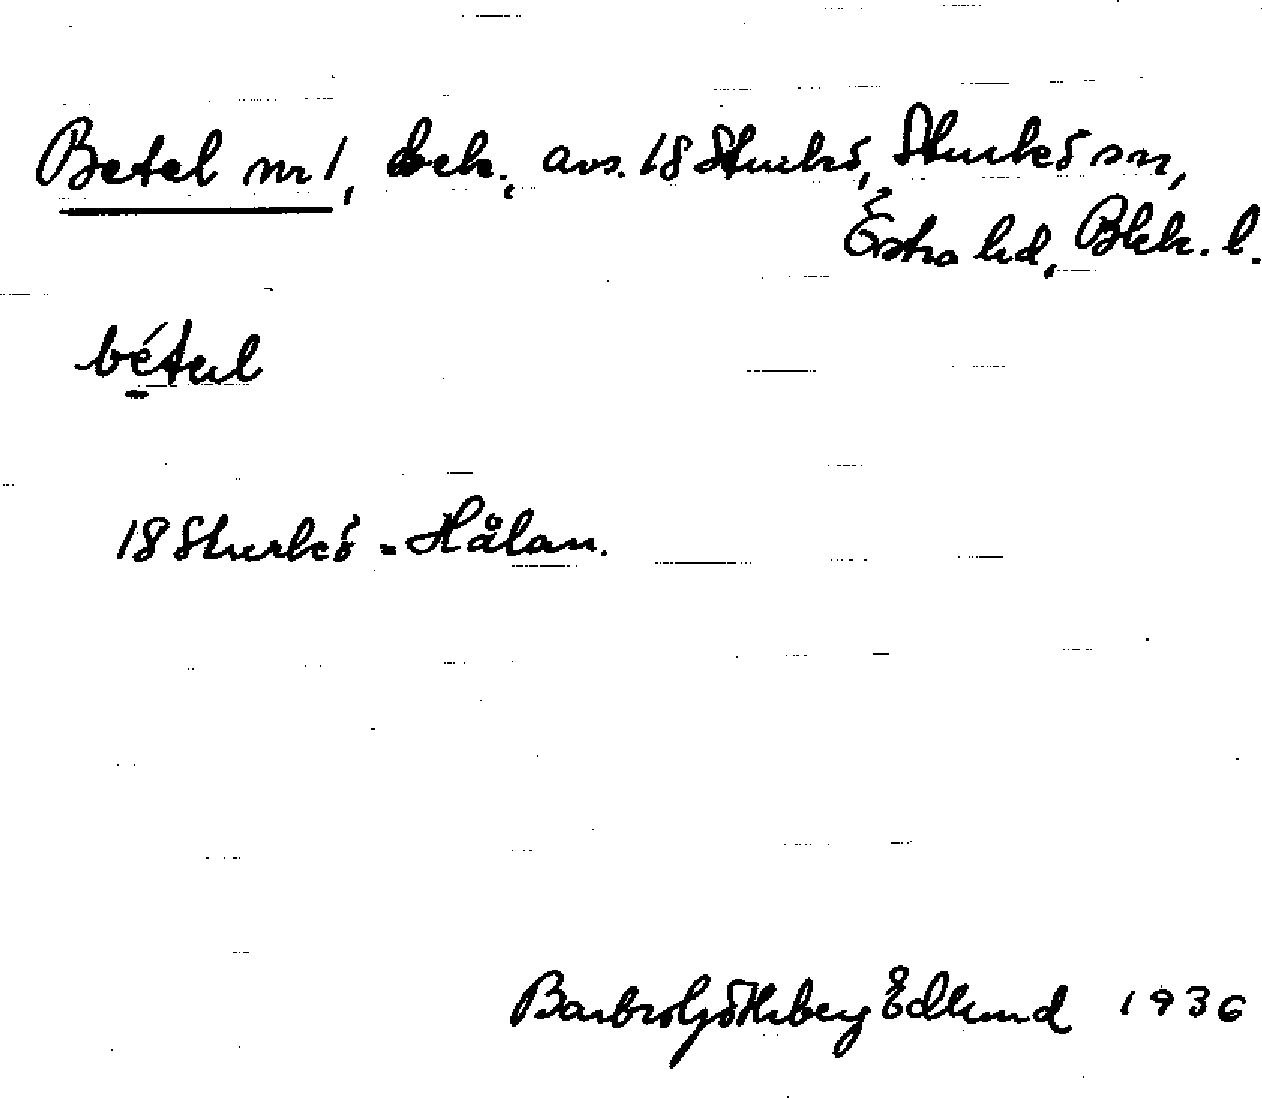 Betel nr 1, bek., avs. 18 Sturkö, Sturkö sn,
Östra hd, Blek. l.
bétal
18 Sturkö - Hålan.
Barbro Götherberg Edlund 1936